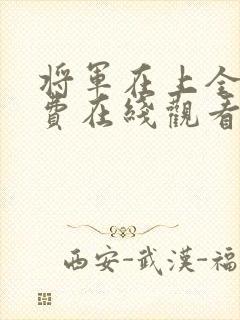 將軍在上全
費在綫觀看
西安-武漢-福